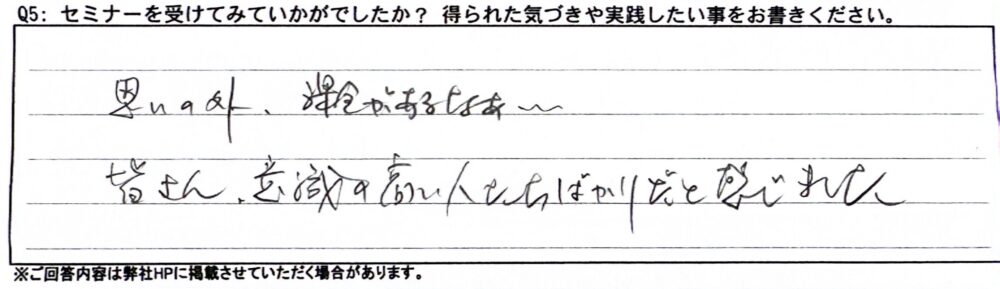 Q5: セミナーを受けてみていかがでしたか？ 得られた気づきや実践したい事をお書きください。
思いの外、課金があるなあ〜
皆さん、意識の高い人たちばかりだと感じました
※ご回答内容は弊社HPに掲載させていただく場合があります。